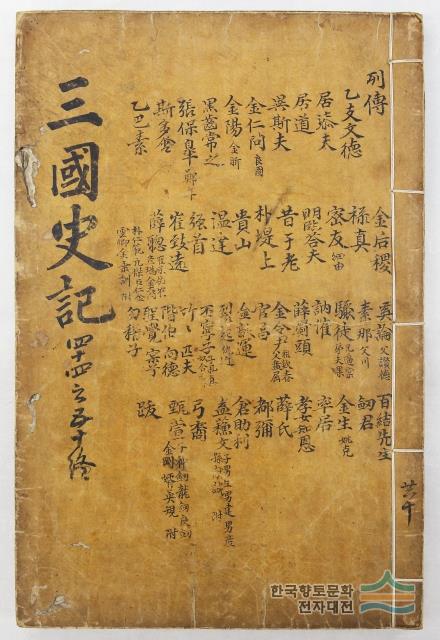 列傳
乙支文德
居柒夫
居道
異斯夫
金仁問 良圖
金陽 金昕
黑齒常之
張保皐 鄭年
斯多含
乙巴素
金后稷
祿真
密友 紐由
明臨荅夫
昔于老
朴堤上
貴山
溫達
强首
崔致遠
薛聰
奚論 父讚德
素那
驟徒
訥催
薛罽頭
金令尹
官昌
金歆運
裂起 仇近
丕寧子
竹竹 匹夫
階伯 向德
聖覺 實兮
勿稽子
百結先生
劒君
金生 姚克
率居
孝女知恩
薛氏
都彌
倉助利
蓋蘇文
弓裔
甄萱
跋
三國史記 四十四之五十終
共十
한국향토문화
전자대전